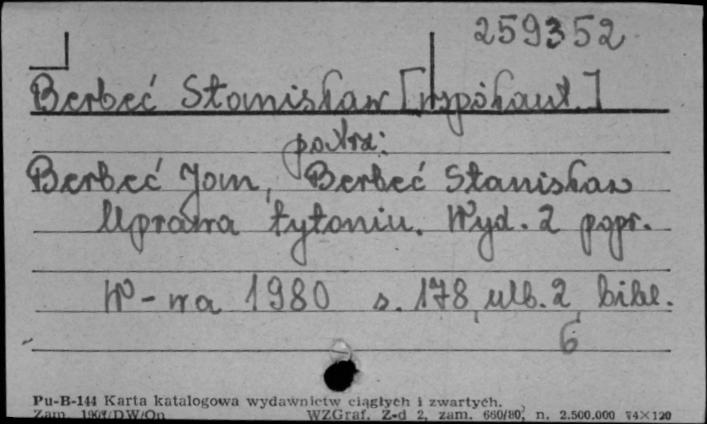 259352
Berbeć Stanisław [współaut.]
patrz:
Berbeć Jan, Berbeć Stanisław
Uprawa tytoniu. Wyd. 2 popr.
W-wa 1980 s. 178, ulb. 2, bibl.
6
Pu-B-144 Karta katalogowa wydawnictw ciągłych i zwartych.
Zam. DW/On WZGraf. Z-d 2, zam. 660/80, n. 2.500.000 74×120